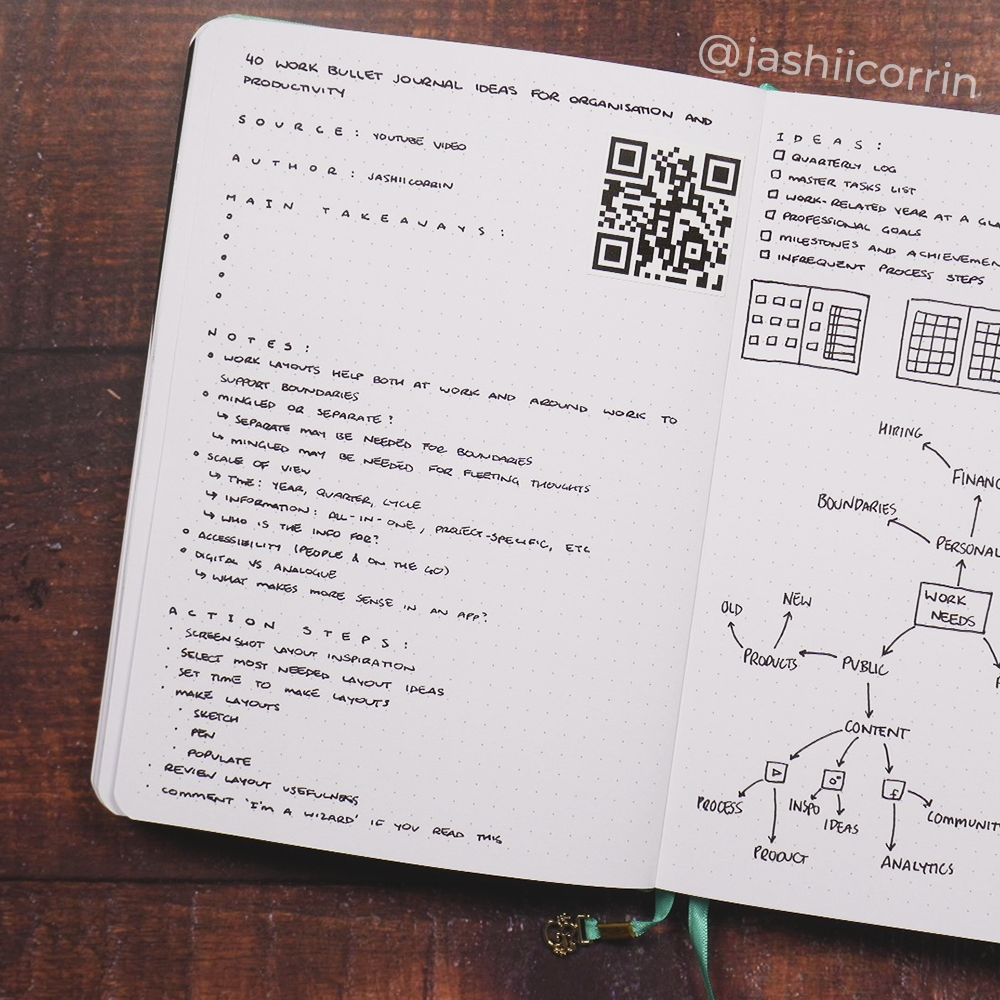 @jashiicorrin
40 WORK BULLET JOURNAL IDEAS FOR ORGANISATION AND
PRODUCTIVITY
SOURCE: YOUTUBE VIDEO
AUTHOR: JASHIICORRIN
MAIN TAKEAWAYS:
NOTES:
WORK LAYOUTS HELP BOTH AT WORK AND AROUND WORK TO
SUPPORT BOUNDARIES
MINGLED OR SEPARATE?
↳ SEPARATE MAY BE NEEDED FOR BOUNDARIES
↳ MINGLED MAY BE NEEDED FOR FLEETING THOUGHTS
SCALE OF VIEW
↳ TIME: YEAR, QUARTER, CYCLE
↳ INFORMATION: ALL-IN-ONE, PROJECT-SPECIFIC, ETC
↳ WHO IS THE INFO FOR?
ACCESSIBILITY (PEOPLE & ON THE GO)
DIGITAL VS ANALOGUE
↳ WHAT MAKES MORE SENSE IN AN APP?
ACTION STEPS:
• SCREENSHOT LAYOUT INSPIRATION
• SELECT MOST NEEDED LAYOUT IDEAS
• SET TIME TO MAKE LAYOUTS
• MAKE LAYOUTS
• SKETCH
• PEN
• POPULATE
• REVIEW LAYOUT USEFULNESS
• COMMENT 'I'M A WIZARD' IF YOU READ THIS
IDEAS:
QUARTERLY LOG
MASTER TASKS LIST
WORK-RELATED YEAR AT A GLA
PROFESSIONAL GOALS
MILESTONES AND ACHIEVEMEN
INFREQUENT PROCESS STEPS
HIRING
FINANC
BOUNDARIES
PERSONAL
WORK
NEEDS
OLD
NEW
PRODUCTS
PUBLIC
CONTENT
PROCESS
INSPO
IDEAS
COMMUNITY
PRODUCT
ANALYTICS